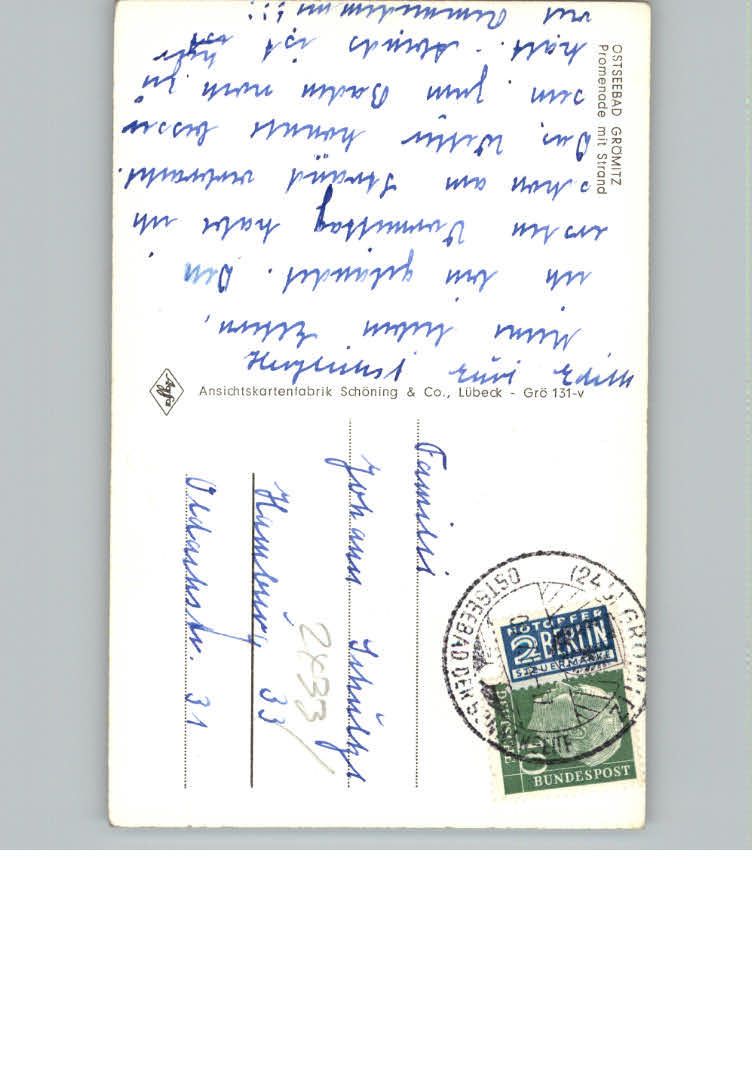 OSTSEEBAD GRÖMITZ
Promenade mit Strand
Meine lieben Eltern,
ich bin gelandet. Den
ersten Vormittag habe ich
schon am Strand verbracht.
Das Wetter konnte besser
sein. Zum Baden noch zu
kalt. Abends ist hier
viel
Ansichtskartenfabrik Schöning & Co., Lübeck - Grö 131-v
agfa
Familie
Johann Schultze
Hamburg 33
2433
31
(24b) GRÖMITZ
OSTSEEBAD DER
NOTOPFER
2 BERLIN
STEUERMARKE
DEUTSCHE
BUNDESPOST